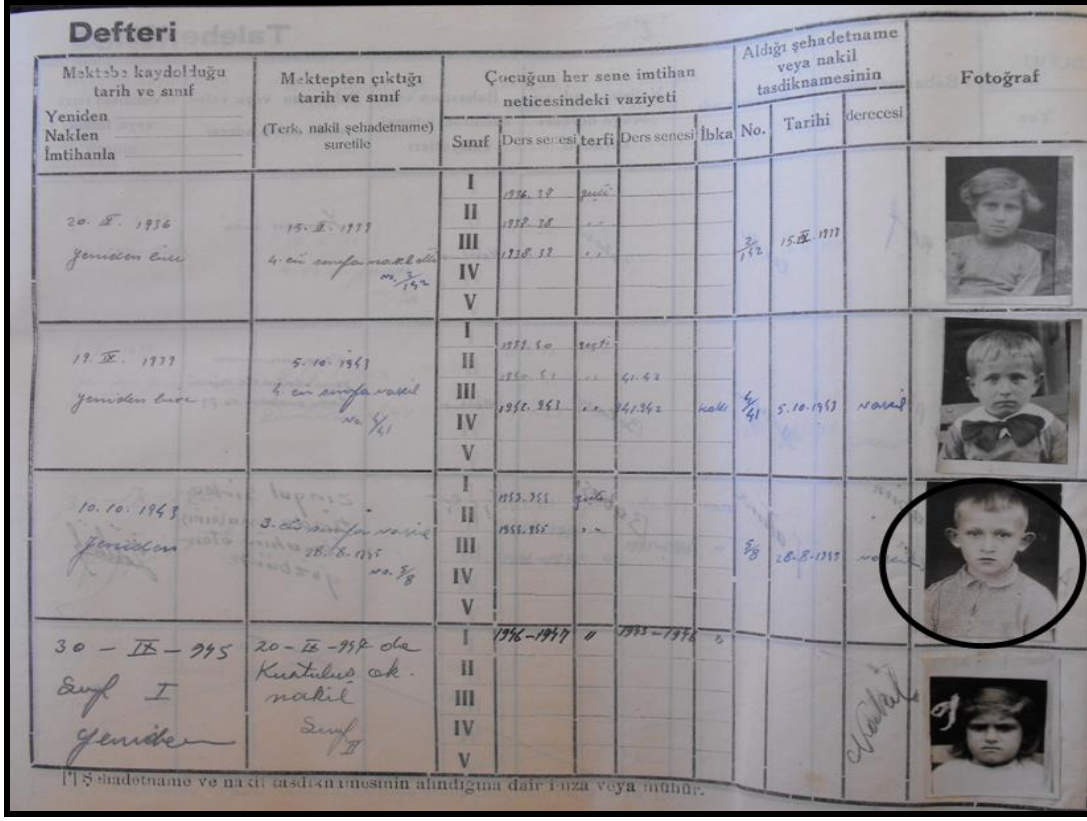 Defteri
Mektebe kaydolduğu
tarih ve sınıf
Yeniden
Naklen
İmtihanla
Mektepten çıktığı
tarih ve sınıf
(Terk, nakil şehadetname)
suretile
Çocuğun her sene imtihan
neticesindeki vaziyeti
Sınıf Ders senesi terfi Ders senesi İbka
Aldığı şehadetname
veya nakil
tasdiknamesinin
No. Tarihi derecesi
Fotoğraf
20. IX. 1936
yeniden
15. IX. 1939
4. cü sınıfa
No. 3/142
I
II
III
IV
V
1936. 37
1938. 39
3/142
15. IX. 1939
19. IX. 1939
yeniden
5.10.1943
4. cü sınıfa nakil
No. 4/41
I
II
III
IV
V
1939. 40 geçti
41.42
1942. 943 941.942
4/41
5.10.1943
nakil
10.10.1943
Yeniden
3. cü sınıfa nakil
28.8.1945
No. 5/8
I
II
III
IV
V
5/8
nakil
30 - IX - 945
Sınıf I
Yeniden
20 - IX - 947 da
Kurtuluş ok.
nakil
Sınıf II
I
II
III
IV
V
1946-1947 " 1945-1946 "
Nakil
[*] Şehadetname ve nakil tasdiknamesinin alındığına dair imza veya mühür.